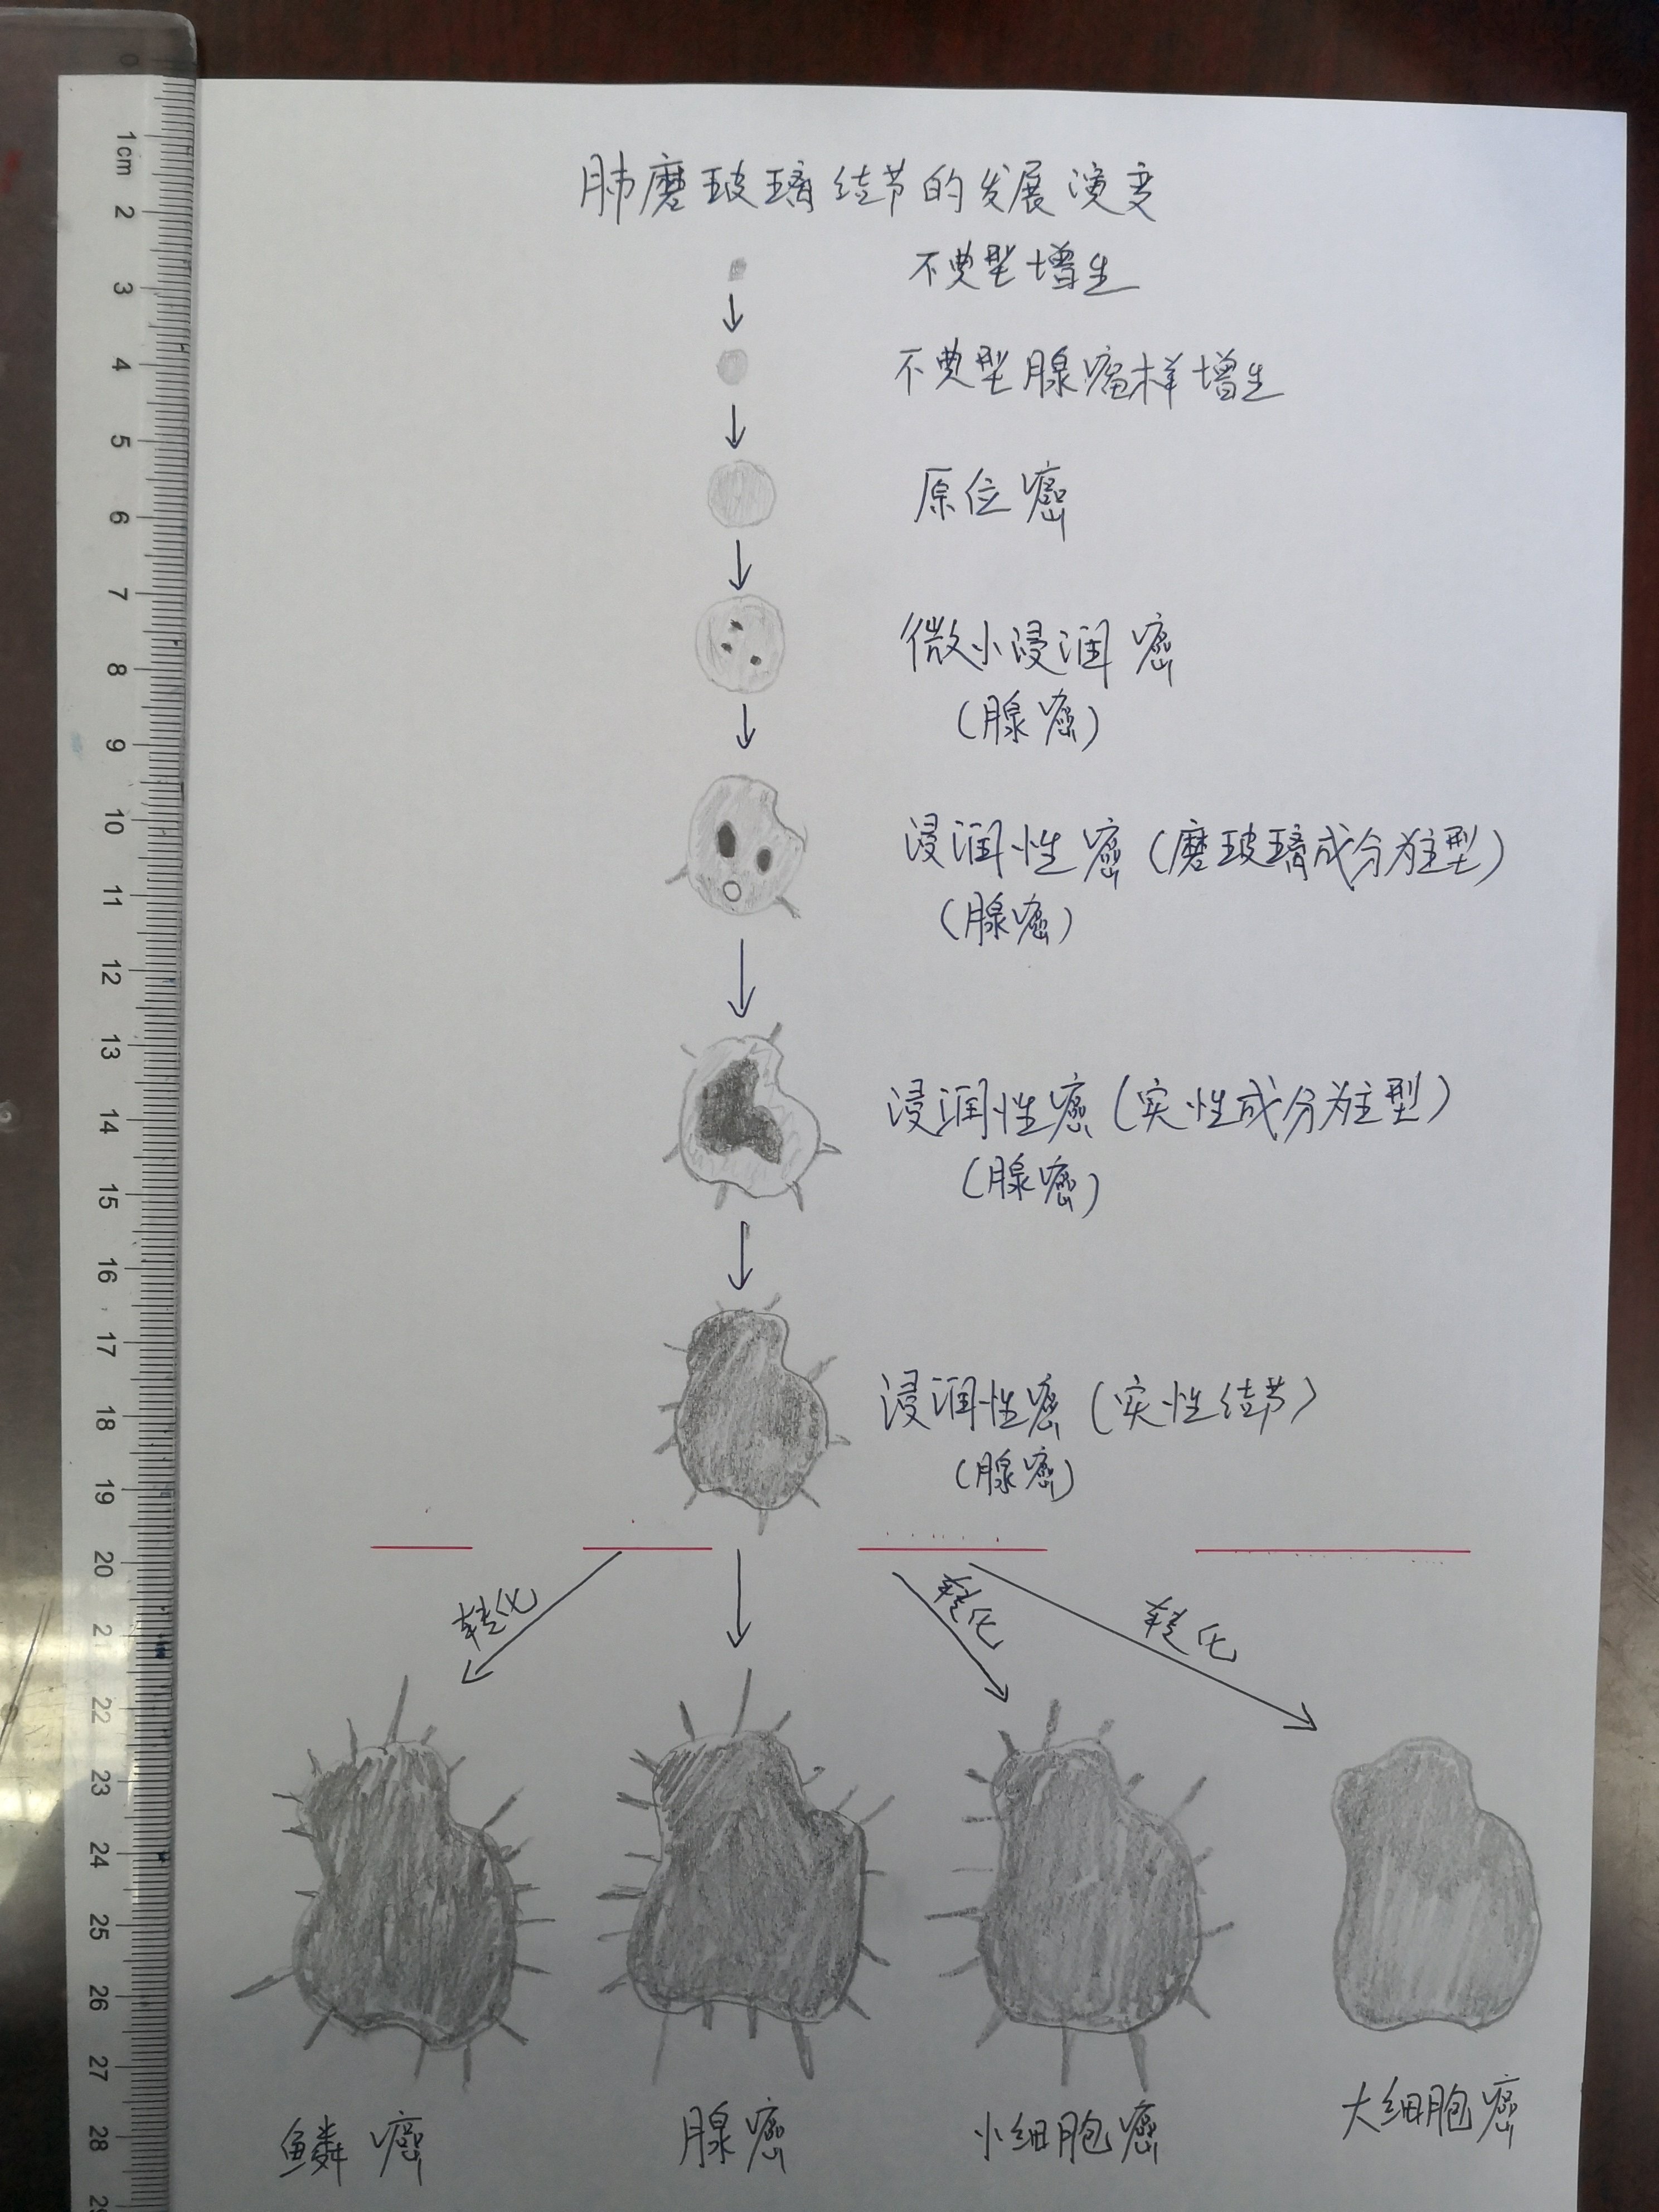 肺磨玻璃结节的发展演变
不典型增生
不典型腺瘤样增生
原位癌
微小浸润癌
(腺癌)
浸润性癌(磨玻璃成分为主型)
(腺癌)
浸润性癌(实性成分为主型)
(腺癌)
浸润性癌(实性结节)
(腺癌)
转化
转化
转化
鳞癌
腺癌
小细胞癌
大细胞癌
0
1cm
2
3
4
5
6
7
8
9
10
11
12
13
14
15
16
17
18
19
20
2
22
23
24
25
26
27
28
29